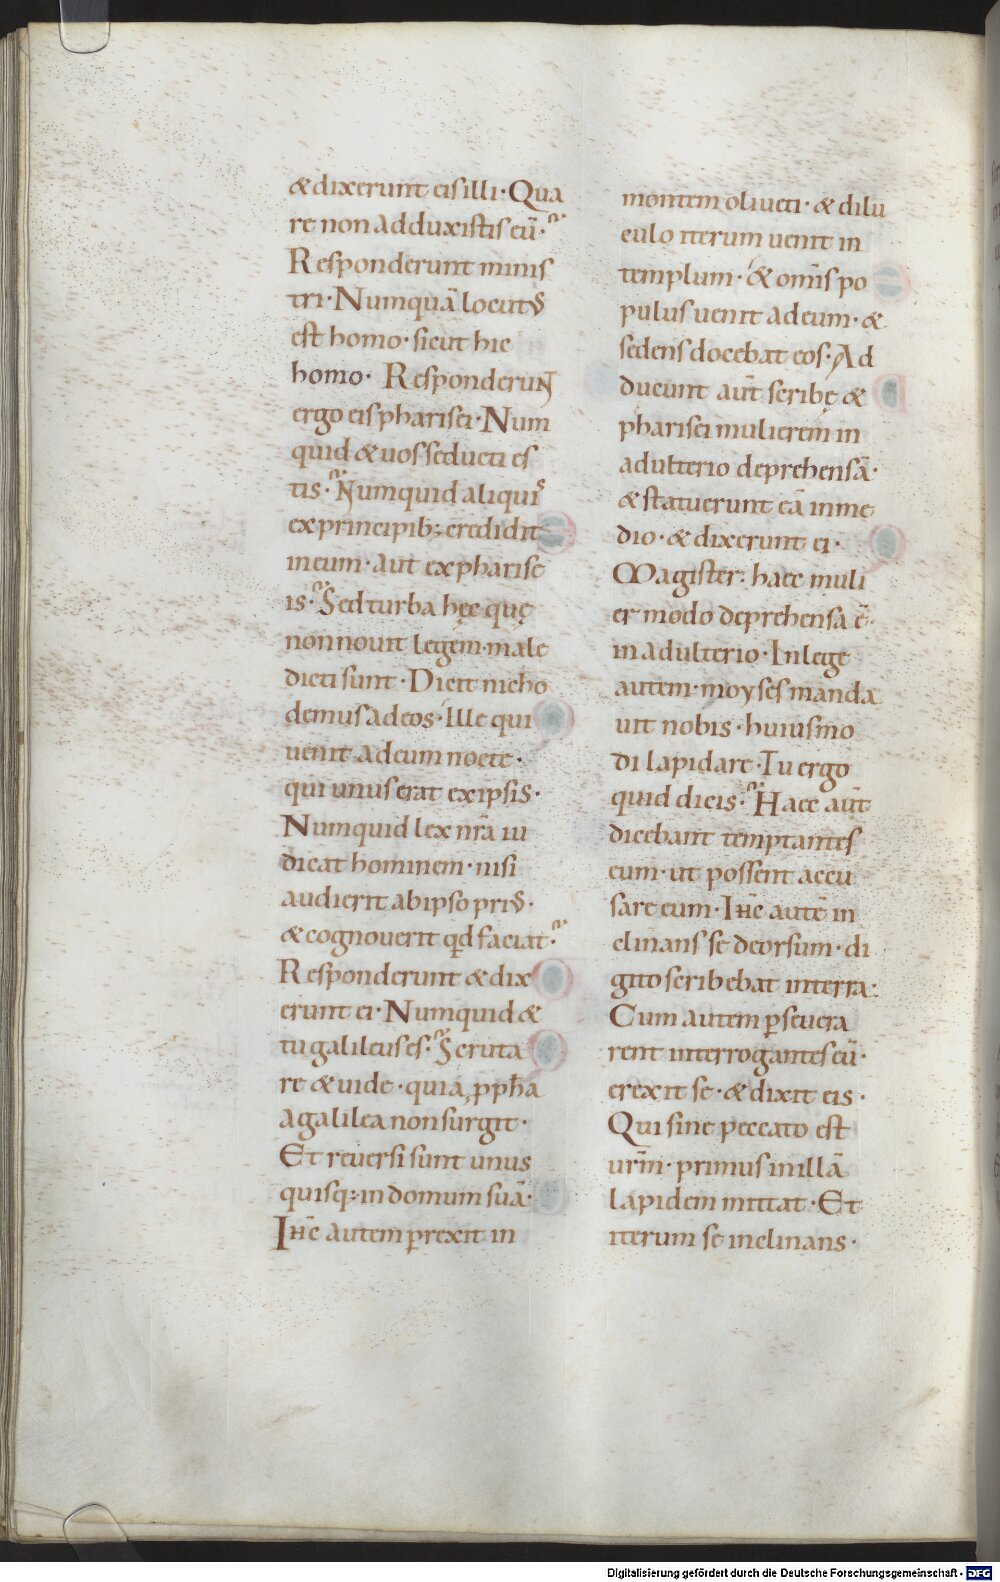 & dixerunt eis illi · Qua
re non adduxistis eū ·
Responderunt minis
tri · Numquā locutus
est homo · sicut hic
homo · Responderunt
ergo eis pharisei · Num
quid & uos seducti es
tis · Numquid aliquis
ex principib; credidit
in eum · aut ex pharise
is · Sed turba hęc quę
non nouit legem · male
dicti sunt · Dicit nicho
demus ad eos · Ille qui
uenit ad eum nocte ·
qui unus erat ex ipsis ·
Numquid lex nrā iu
dicat hominem · nisi
audierit ab ipso prius ·
& cognouerit qđ faciat ·
Responderunt & dix
erunt ei · Numquid &
tu galileus es · Scruta
re & uide · quia ꝓph̄a
a galilea non surgit ·
Et reuersi sunt unus
quisq; in domum suā ·
Ih̄c autem perrexit in
montem oliueti · & dilu
culo iterum uenit in
templum · & om̄is po
pulus uenit ad eum · &
sedens docebat eos · Ad
ducunt aūt scribę &
pharisei mulierem in
adulterio deprehensā ·
& statuerunt eā in me
dio · & dixerunt ei ·
Magister: haec muli
er modo deprehensa ē ·
in adulterio · In lege
autem · moyses manda
uit nobis · huiusmo
di lapidare · Tu ergo
quid dicis · Haec aūt
dicebant temptantes
eum · ut possent accu
sare eum · Ih̄c autē in
clinans se deorsum · di
gito scribebat in terra:
Cum autem ꝑseuera
rent interrogantes eū ·
erexit se · & dixit eis ·
Qui sine peccato est
ur̄m · primus in illā
lapidem mittat · Et
iterum se inclinans ·
Digitalisierung gefördert durch die Deutsche Forschungsgemeinschaft - DFG